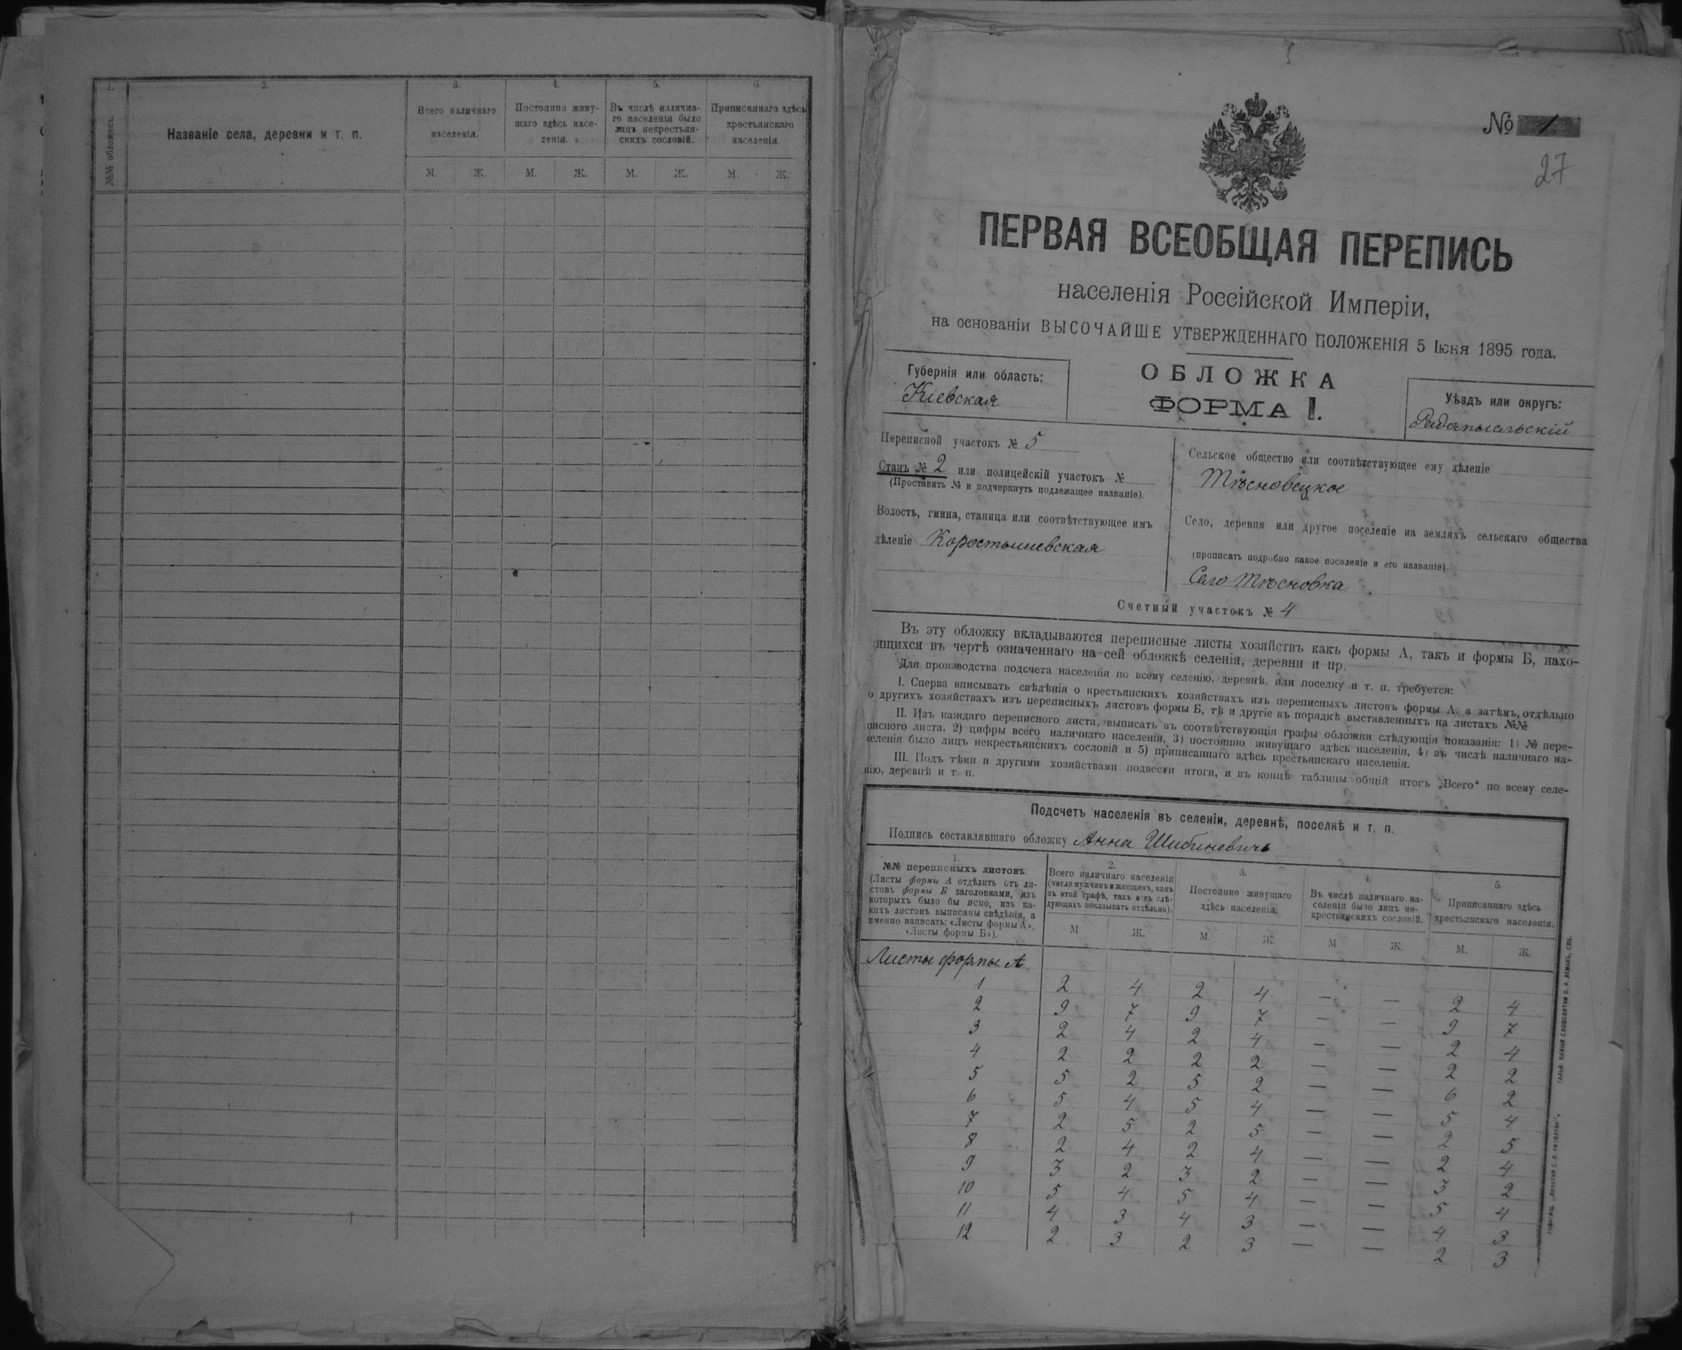 1.
2.
3.
4.
5.
6.
№№ обложекъ.
Названіе села, деревни и т. п.
Всего наличнаго
населенія.
Постоянно живу-
щаго здѣсь насе-
ленія.
Въ числѣ налична-
го населенія было
лицъ некрестьян-
скихъ сословій.
Приписаннаго здѣсь
крестьянскаго
населенія
М. Ж. М. Ж. М. Ж. М. Ж.
№ 1
27
ПЕРВАЯ ВСЕОБЩАЯ ПЕРЕПИСЬ
населенія Россійской Имперіи,
на основаніи ВЫСОЧАЙШЕ УТВЕРЖДЕННАГО ПОЛОЖЕНІЯ 5 Іюня 1895 года.
ОБЛОЖКА
ФОРМА I.
Губернія или область:
Кіевская
Уѣздъ или округъ:
Радомысльскій
Переписной участокъ № 5
Станъ № 2 или полицейскій участокъ №
(Проставить № и подчеркнуть подлежащее названіе).
Волость, гмина, станица или соотвѣтствующее имъ
дѣленіе Коростышевская
Сельское общество или соотвѣтствующее ему дѣленіе
Тѣсновецкое
Село, деревня или другое поселеніе на земляхъ сельскаго общества
(прописать подробно какое поселеніе и его названіе)
Село Тѣсновка.
Счетный участокъ № 4
Въ эту обложку вкладываются переписные листы хозяйствъ какъ формы А, такъ и формы Б, нахо-
ящихся въ чертѣ означеннаго на сей обложкѣ селенія, деревни и пр.
Для производства подсчета населенія по всему селенію, деревнѣ, или поселку и т. п. требуется:
I. Сперва вписывать свѣдѣнія о крестьянскихъ хозяйствахъ изъ переписныхъ листовъ формы А, а затѣмъ, отдѣльно
о другихъ хозяйствахъ изъ переписныхъ листовъ формы Б, тѣ и другіе въ порядкѣ выставленныхъ на листахъ №№
II. Изъ каждаго переписного листа, выписать въ соотвѣтствующія графы обложки слѣдующія показанія: 1) № пере-
писного листа, 2) цифры всего наличнаго населенія, 3) постоянно живущаго здѣсь населенія, 4) въ числѣ наличнаго на-
селенія было лицъ некрестьянскихъ сословій и 5) приписаннаго здѣсь крестьянскаго населенія.
III. Подъ тѣми и другими хозяйствами подвести итоги, и въ концѣ таблицы общій итогъ „Всего“ по всему селе-
нію, деревнѣ и т. п.
Подсчетъ населенія въ селеніи, деревнѣ, поселкѣ и т. п.
Подпись составлявшаго обложку Анна
1.
№№ переписныхъ листовъ.
(Листы формы А отдѣлить отъ ли-
стовъ формы Б заголовками, изъ
которыхъ было бы ясно, изъ ка-
кихъ листовъ выписаны свѣдѣнія, а
именно написать: «Листы формы А»,
«Листы формы Б»).
2.
Всего наличнаго населенія
(число мужчинъ и женщинъ, какъ
въ этой графѣ, такъ и въ слѣ-
дующихъ показывать отдѣльно).
3.
Постоянно живущаго
здѣсь населенія.
4.
Въ числѣ наличнаго на-
селенія было лицъ не-
крестьянскихъ сословій.
5
Приписаннаго здѣсь
крестьянскаго населенія.
М Ж. М. Ж. М Ж. М. Ж.
Листы формы А
1 2 4 2 4 — — 2 4
2 9 7 9 7 — — 9 7
3 2 4 2 4 — — 2 4
4 2 2 2 2 — — 2 2
5 5 2 5 2 — — 6 2
6 5 4 5 4 — — 5 4
7 2 5 2 5 — — 2 5
8 2 4 2 4 — — 2 4
9 3 2 3 2 — — 3 2
10 5 4 5 4 — — 5 4
11 4 3 4 3 — — 4 3
12 2 3 2 3 — — 2 3